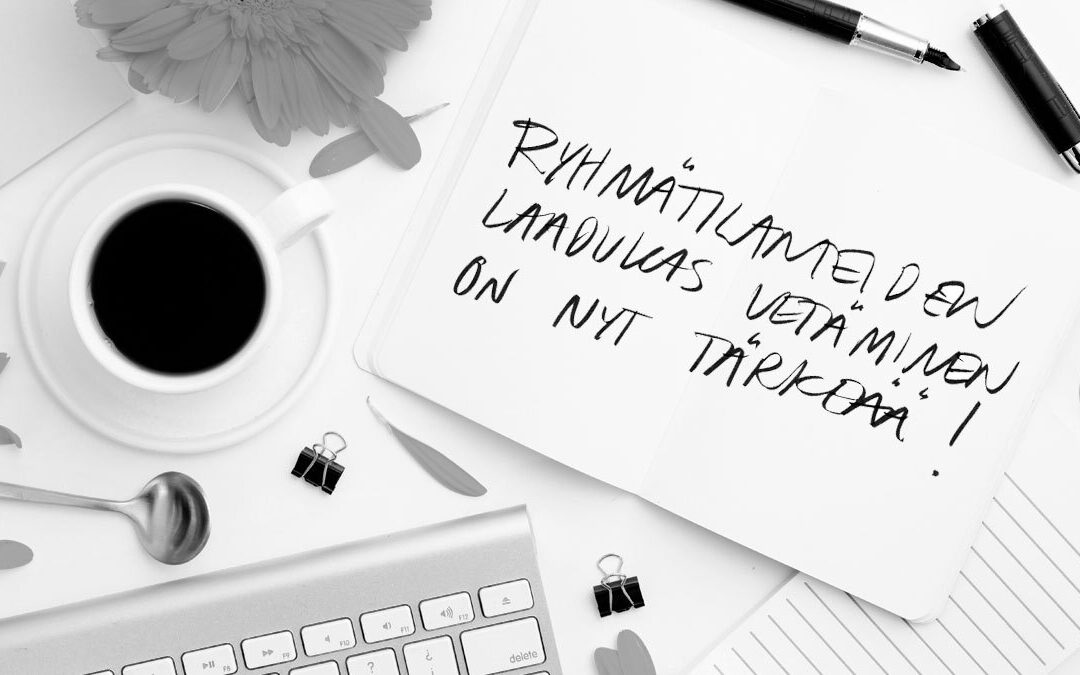 RYHMÄTILANTEIDEN
LAADUKAS VETÄMINEN
ON NYT TÄRKEÄÄ!
F8
F9
F10
F11
F12
delete
?
¿